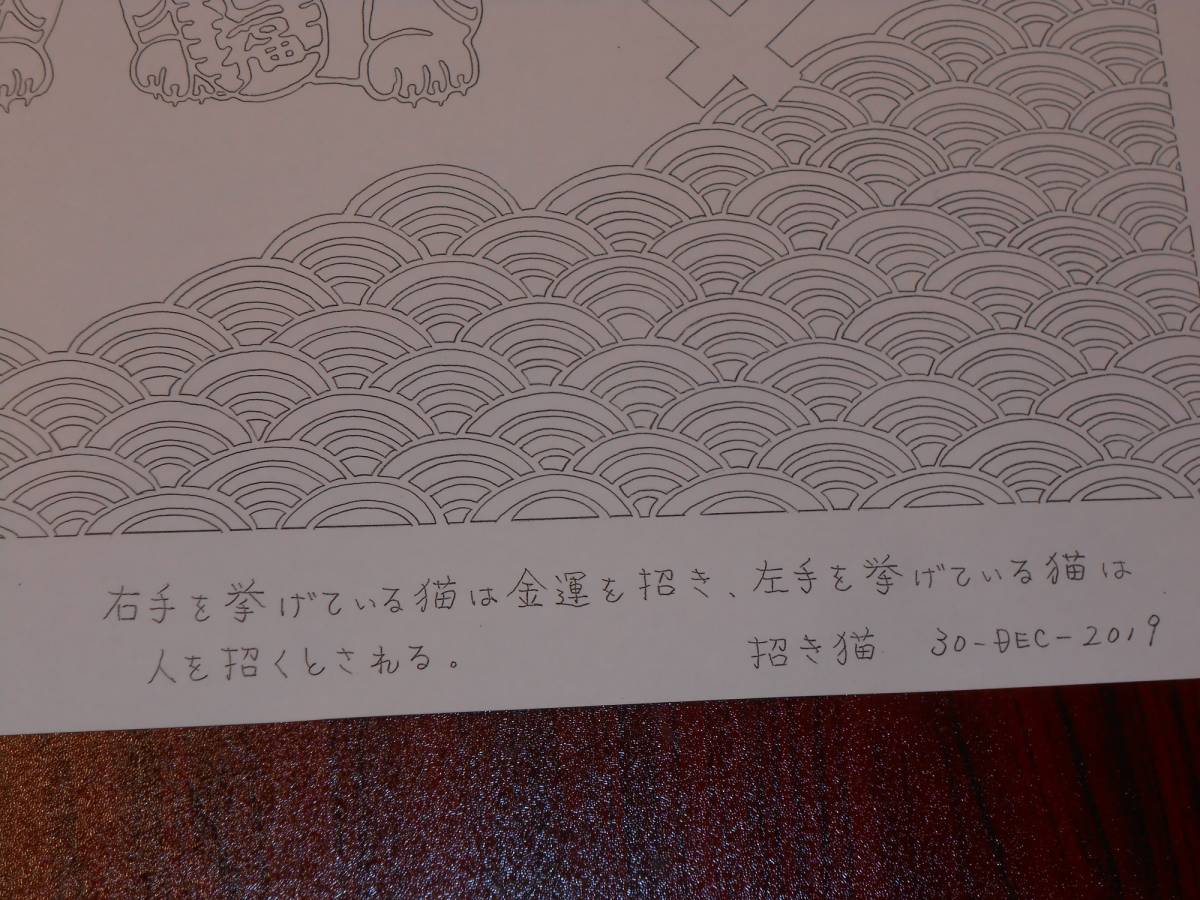 福
右手を挙げている猫は金運を招き、左手を挙げている猫は
人を招くとされる。
招き猫 30-DEC-2019